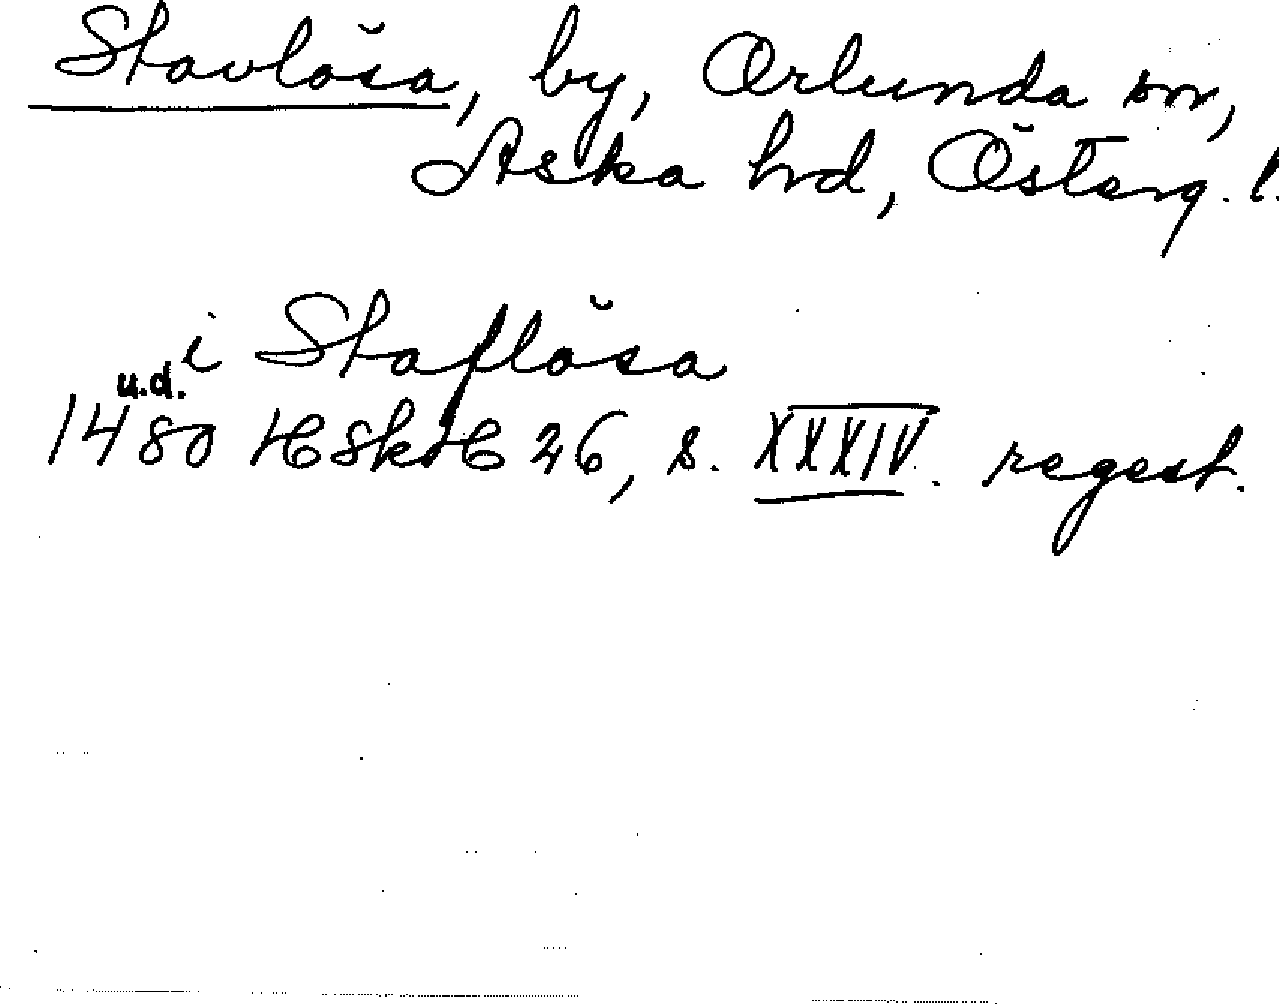 Stavlösa, by, Orlunda sn,
Aska hd, Österg. l.
i Staflösa
u.d.
1480 HSkH 26, s. XXXIV. regest.